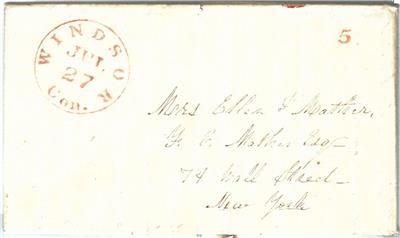 WINDSOR
JUL
27
Con.
5
Mrs Ellen F Mather,
F. E. Mather Esq
74 Wall Street
New York